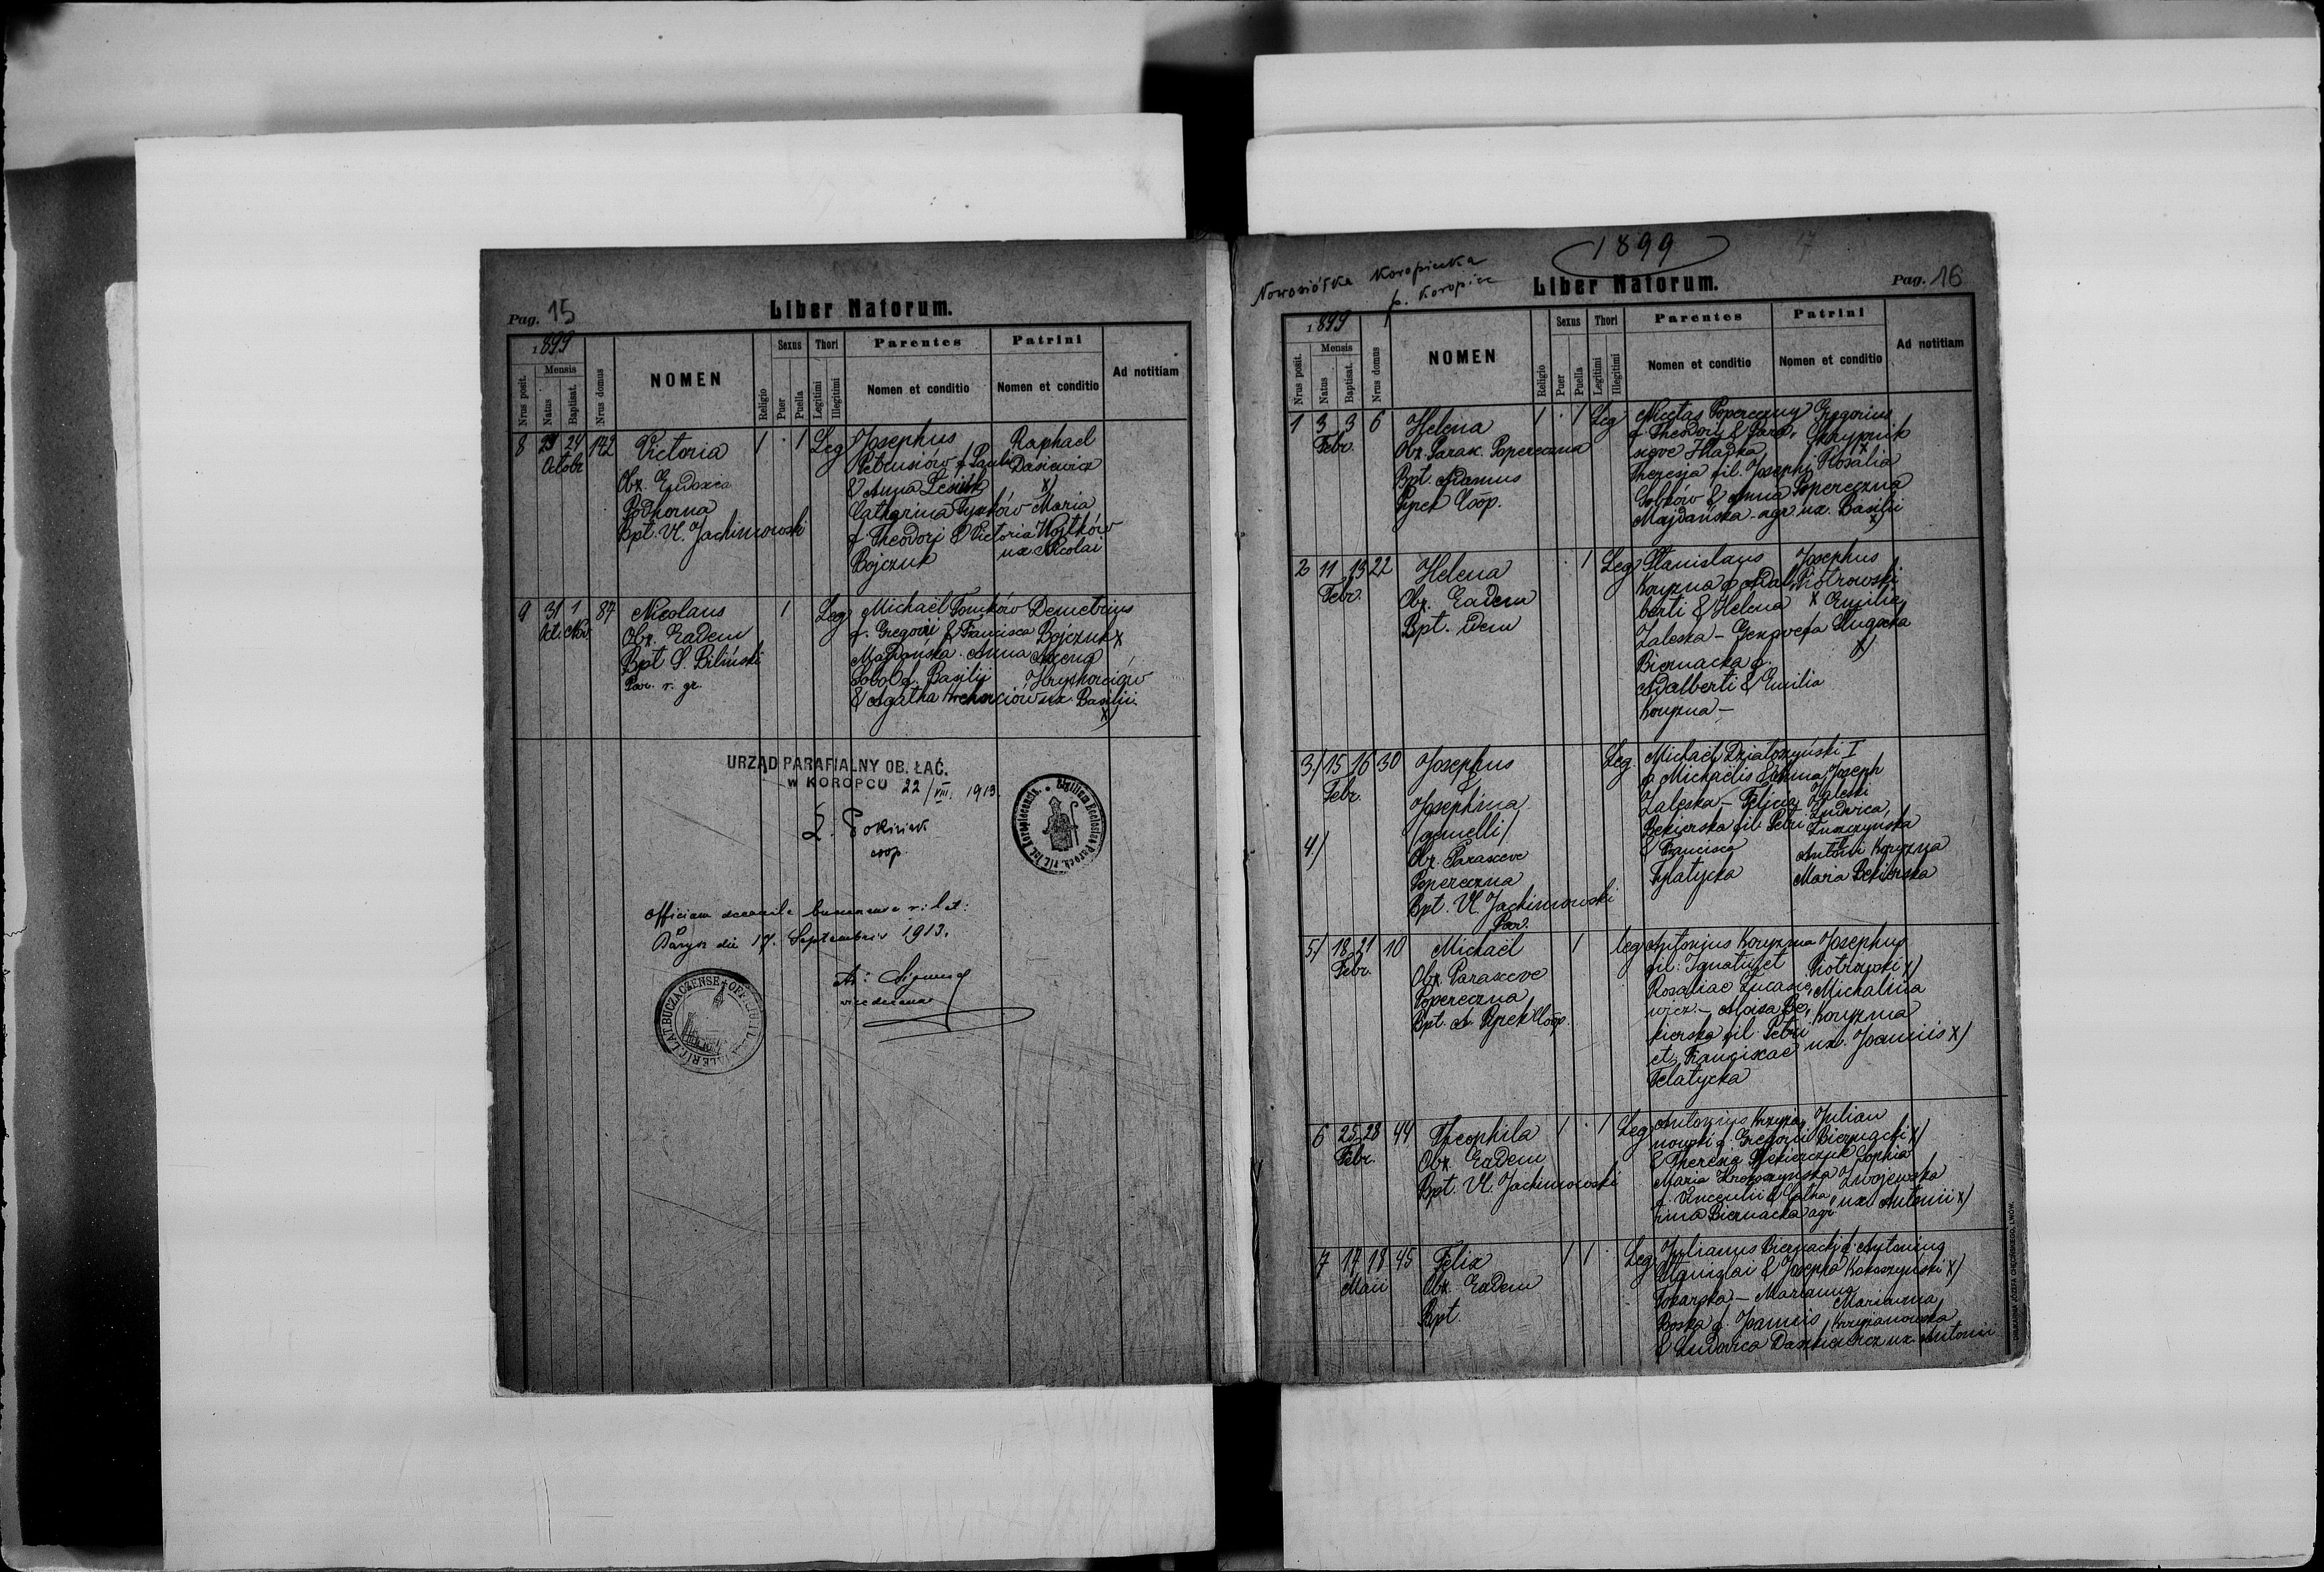 Pag. 15
Liber Natorum.
1899
Mensis
Nrus posit.
Natus
Baptisat.
Nrus domus
NOMEN
Religio
Sexus
Puer
Puella
Thori
Legitimi
Illegitimi
Parentes
Nomen et conditio
Patrini
Nomen et conditio
Ad notitiam
8 29 29 172
Octobr
Victoria
Obx. Eudoxia
Podhorna
Bpt. Vl. Jachimowski
1 · 1 Leg
Josephus
Petrusiów f. Pauli
& Anna Lesiuk
Catharina
f. Theodori & Victoria
Bojczuk
Raphael
Dasiewicz
x)
Maria
Wojtków
ux Nicolai
9 31 1 87
Oct. Nov
Nicolaus
Obx. Eadem
Bpt S. Biliński
Par. r. gr.
1 Leg
Michaël Tomków
f. Gregorii & Francisca
Majdańska Anna
Sobol f. Basilii
& Agatha
Demetrius
Bojczuk x
Hryhorciów
ux. Basilii
x)
URZĄD PARAFIALNY OB. ŁAĆ.
W KOROPCU 22/VIII. 1913.
coop.
Sigillum Ecclesiae Paroch. rit. lat. Koropiecensis.
Officium decanale r. lat:
Barysz die 17. Septembris 1913.
vicedecanus
Nowosiółka Koropiecka
p. Koropiec
1899
Liber Natorum.
Pag. 16
1899
Mensis
Nrus posit.
Natus
Baptisat.
Nrus domus
NOMEN
Religio
Sexus
Puer
Puella
Thori
Legitimi
Illegitimi
Parentes
Nomen et conditio
Patrini
Nomen et conditio
Ad notitiam
1 3 3 6
Febr.
Helena
Obx. Parax. Popereczna
Bpt. Adamus
Rypek Coop.
1 · 1 Leg
Nicetas Popereczny
f. Theodori & Paras,
ceve Hladka
Theresia fil. Josephi
Sobków & Anna
Majdańska - agr.
Gregorius
Skrypnik
x
Rosalia
Popereczna
ux. Basilii
x)
2 11 13 22
Febr.
Helena
Obx. Eadem
Bpt. idem
· 1 Leg
Stanislaus
Koryzna f. Adal,
berti & Helena
Zaleska - Genovefa
Biernacka f.
Adalberti & Emilia
Koryzna -
Josephus
Piotrowski
x Emilia
Slugocka
x)
3/ 15 16 30
Febr.
4/
Josephus
Josephina
/gemelli/
Obx. Parasceve
Popereczna
Bpt. Vl. Jachimowski
Par.
Leg
Michaël Działoszyński
f. Michaëlis & Anna
Zaleska - Felicia
Bekierska fil. Petri
& Francisca
Telatycka
I
Joseph
Zaleski
Ludovica
Tuszczyńska
II
Antoni Koryzna
Maria Bekierska
5/ 18 21 10
Febr.
Michaël
Obx. Parasceve
Popereczna
Bpt. A. Rypek Coop.
1 leg
Antonius Koryzna
fil: Ignatii et
Rosaliae Lucasie,
wicz. - Aloisa Be,
kierska fil. Petri
et Franciscae
Telatycka
Josephus
Piotrowski x)
Michalina
Koryzna
ux. Joannis x)
6 25 28 44
Febr.
Theophila
Obx. Eadem
Bpt. Vl. Jachimowski
1 · 1 Leg
Antonius Krzyża,
nowski f. Gregorii
& Theresia Bekierczuk
Maria
f. Vincentii & Catha,
rina Biernacka agr.
Julian
Biernacki x)
Sophia
Zwojewska
ux. Antonii x)
7 17 18 45
Maii
Felix
Obx. Eadem
Bpt.
1 1 · Leg
Julianus Biernacki f.
Stanislai & Josepha
Tokarska - Marianna
Boska f. Joannis
& Ludovica Daszkiewicz
Antonius
Krokoszyński x)
Marianna
Krzyżanowska
ux. Antonii
DRUKARNIA JÓZEFA CHĘCIŃSKIEGO, LWÓW.